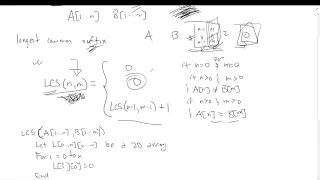 A[1...n] B[1...n]
longest common suffix A B
LCS(n,m) =
0 if n=0 or m=0
0 if n>0 & m>0
& A[n] ≠ B[m]
LCS(n-1,m-1) + 1 if n>0 & m>0
& A[n] = B[m]
LCS(A[1...n], B[1...n])
Let L[0...n][0...m] be a 2D array
For i = 0 to n
L[i][0] = 0
End